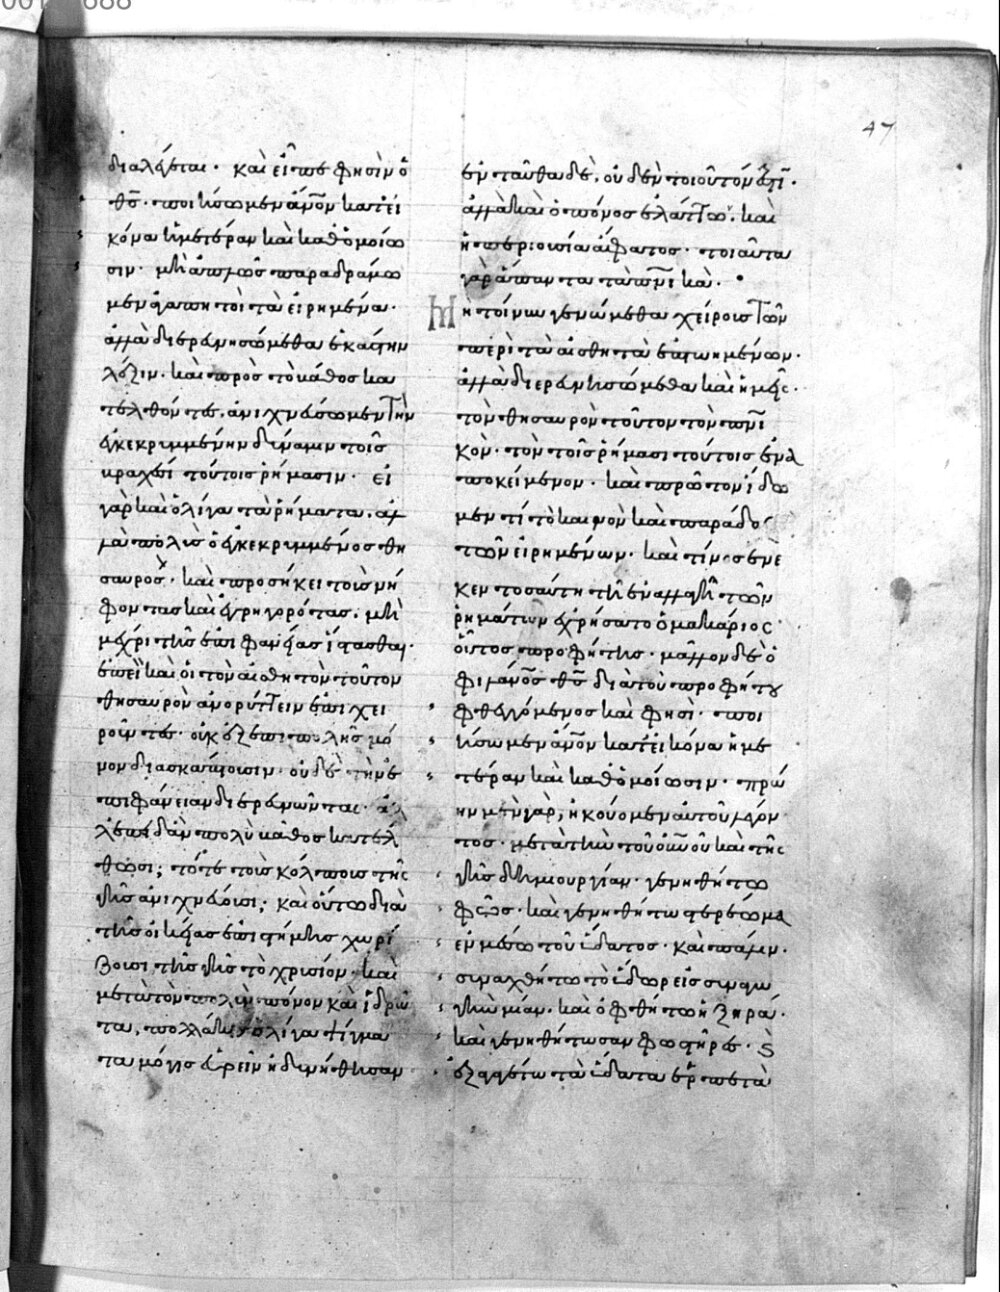 47
διαλέγεται. καὶ εἶπε φησὶν ὁ
θς. ποιήσωμεν ἄνον κατ' εἰ
κόνα ἡμετέραν καὶ καθ' ὁμοίω
σιν. μὴ ἁπλῶς παραδράμω
μεν ἀγαπητοὶ τὰ εἰρημένα.
ἀλλὰ διερευνησώμεθα ἑκάστην
λέξιν. καὶ πρὸς τὸ βάθος κα
τελθόντες, ἀνιχνεύσωμεν τὴν
ἐγκεκρυμμένην δύναμιν τοῖς
βραχέσι τούτοις ῥήμασιν. εἰ
γὰρ καὶ ὀλίγα τὰ ῥήματα, ἀλ
λὰ πολὺς ὁ ἐγκεκρυμμένος θη
σαυρός. καὶ προσήκει τοὺς νή
φοντας καὶ ἐγρηγορότας, μὴ
μέχρι τῆς ἐπιφανείας ἵστασθαι.
ἐπεὶ καὶ οἱ τὸν αἰσθητὸν τοῦτον
θησαυρὸν ἀνορύττειν ἐπιχει
ροῦντες. οὐκ ἐξεπιπολῆς μό
νον διασκάπτουσιν. οὐδὲ τὴν ἐ
πιφάνειαν διερευνῶνται. ἀλ
λ' ἐπειδὰν πολὺ βάθος κατέλ
θωσι; τότε τοῖς κόλποις τῆς
γῆς ἀνιχνεύουσι; καὶ οὕτω διὰ
τῆς οἰκείας ἐπιστήμης χωρί
ζουσι τῆς γῆς τὸ χρυσίον. καὶ
μετὰ τὸν πολὺν πόνον καὶ ἱδρῶ
τα, πολλάκις ὀλίγα ψίγμα
τα μόγις εὑρεῖν ἠδυνήθησαν
ἐνταῦθα δὲ, οὐδὲν τοιοῦτόν ἐστι.
ἀλλὰ καὶ ὁ πόνος ἐλάττων. καὶ
ἡ περιουσία ἄφατος. τοιαῦτα
γὰρ ἅπαντα τὰ πνικά.
Μὴ τοίνυν γενώμεθα χείρους τῶν
περὶ τὰ αἰσθητὰ ἐπτοημένων.
ἀλλὰ διερευνησώμεθα καὶ ἡμεῖς.
τὸν θησαυρὸν τοῦτον τὸν πνι
κόν. τὸν τοῖς ῥήμασι τούτοις ἐνα
ποκείμενον. καὶ πρῶτον ἴδω
μεν τί τὸ καινὸν καὶ παράδοξ
τῶν εἰρημένων. καὶ τίνος ἕνε
κεν τοσαύτη τῇ ἐναλλαγῇ τῶν
ῥημάτων ἐχρήσατο ὁ μακάριος
οὗτος προφήτης. μᾶλλον δὲ ὁ
φιλάνος θς διὰ τοῦ προφήτου
φθεγγόμενος καὶ φησί. ποι
ήσωμεν ἄνον κατ' εἰκόνα ἡμε
τέραν καὶ καθ' ὁμοίωσιν. πρώ
ην μὲν γὰρ, ἠκούομεν αὐτοῦ λέγον
τος. μετὰ τὴν τοῦ οὐνοῦ καὶ τῆς
γῆς δημιουργίαν. γενηθήτω
φῶς. καὶ γενηθήτω στερέωμα
ἐν μέσω τοῦ ὕδατος. καὶ πάλιν.
συναχθήτω τὸ ὕδωρ εἰς συναγω
γὴν μίαν. καὶ ὀφθήτω ἡ ξηρά.
καὶ γενηθήτωσαν φωστῆρες. ϗ
ἐξαγαγέτω τὰ ὕδατα ἑρπετὰ